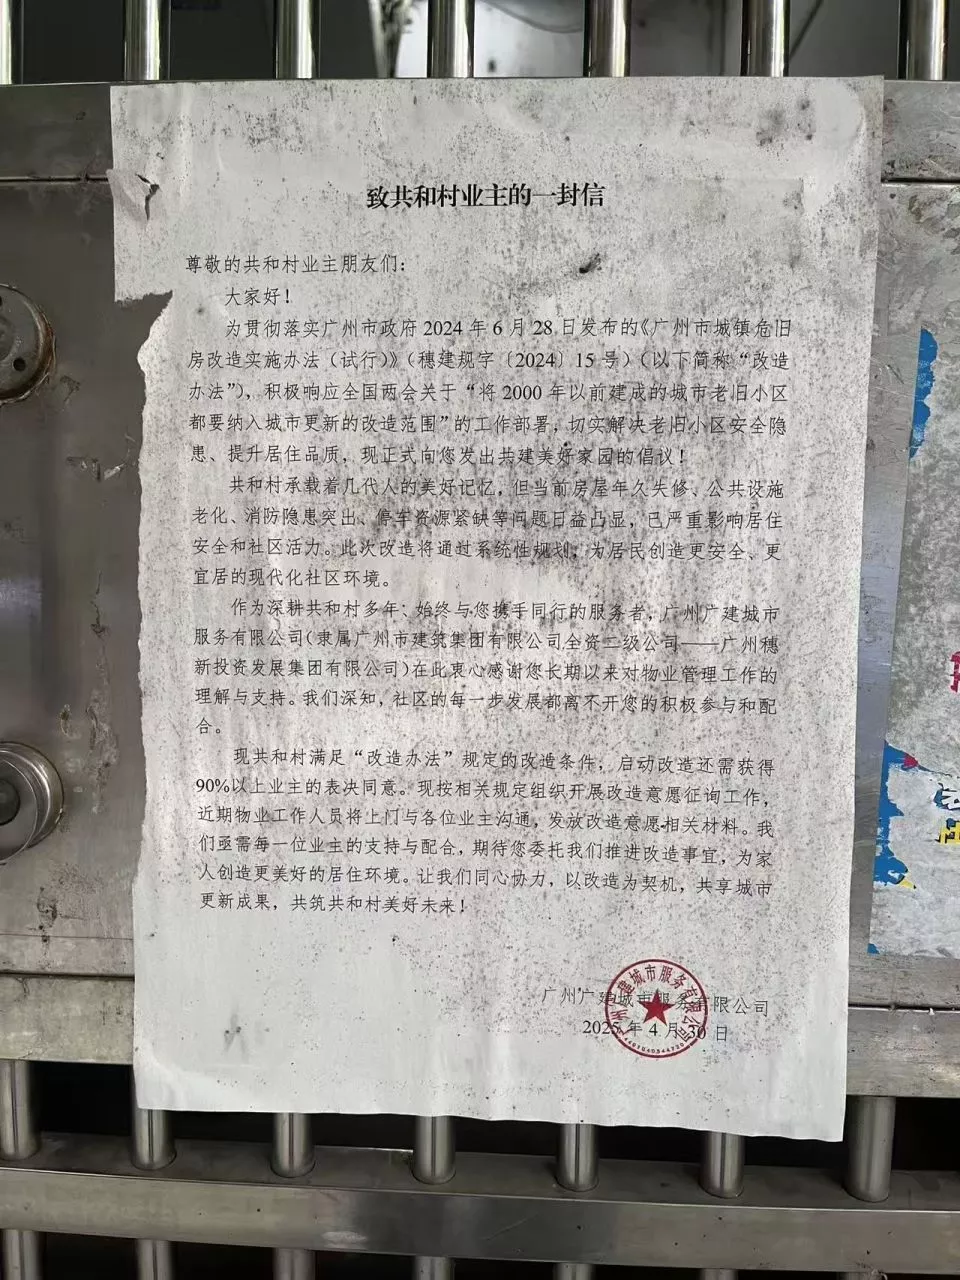 致共和村业主的一封信
尊敬的共和村业主朋友们：
大家好！
为贯彻落实广州市政府 2024 年 6 月 28 日发布的《广州市城镇危旧
房改造实施办法（试行）》（穗建规字〔2024〕15 号）（以下简称“改造
办法”），积极响应全国两会关于“将 2000 年以前建成的城市老旧小区
都要纳入城市更新的改造范围”的工作部署，切实解决老旧小区安全隐
患、提升居住品质，现正式向您发出共建美好家园的倡议！
共和村承载着几代人的美好记忆，但当前房屋年久失修、公共设施
老化、消防隐患突出、停车资源紧缺等问题日益凸显，已严重影响居住
安全和社区活力。此次改造将通过系统性规划，为居民创造更安全、更
宜居的现代化社区环境。
作为深耕共和村多年、始终与您携手同行的服务者，广州广建城市
服务有限公司（隶属广州市建筑集团有限公司全资二级公司——广州穗
新投资发展集团有限公司）在此衷心感谢您长期以来对物业管理工作的
理解与支持。我们深知，社区的每一步发展都离不开您的积极参与和配
合。
现共和村满足“改造办法”规定的改造条件，启动改造还需获得
90%以上业主的表决同意。现按相关规定组织开展改造意愿征询工作，
近期物业工作人员将上门与各位业主沟通，发放改造意愿相关材料。我
们亟需每一位业主的支持与配合，期待您委托我们推进改造事宜，为家
人创造更美好的居住环境。让我们同心协力，以改造为契机，共享城市
更新成果，共筑共和村美好未来！
广州广建城市服务有限公司
2025 年 4 月 30 日